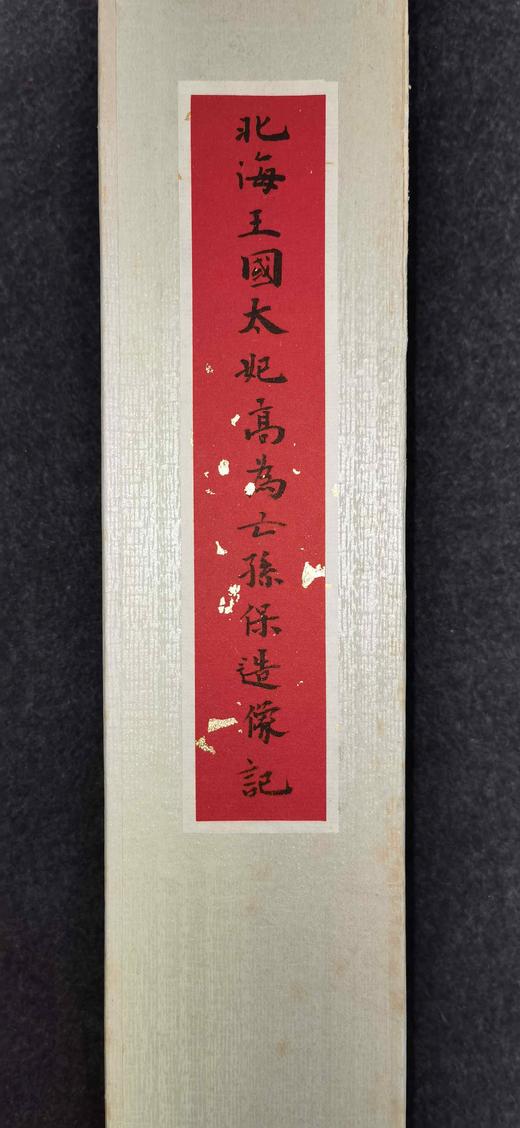 北海王國太妃高為亡孫保造像記